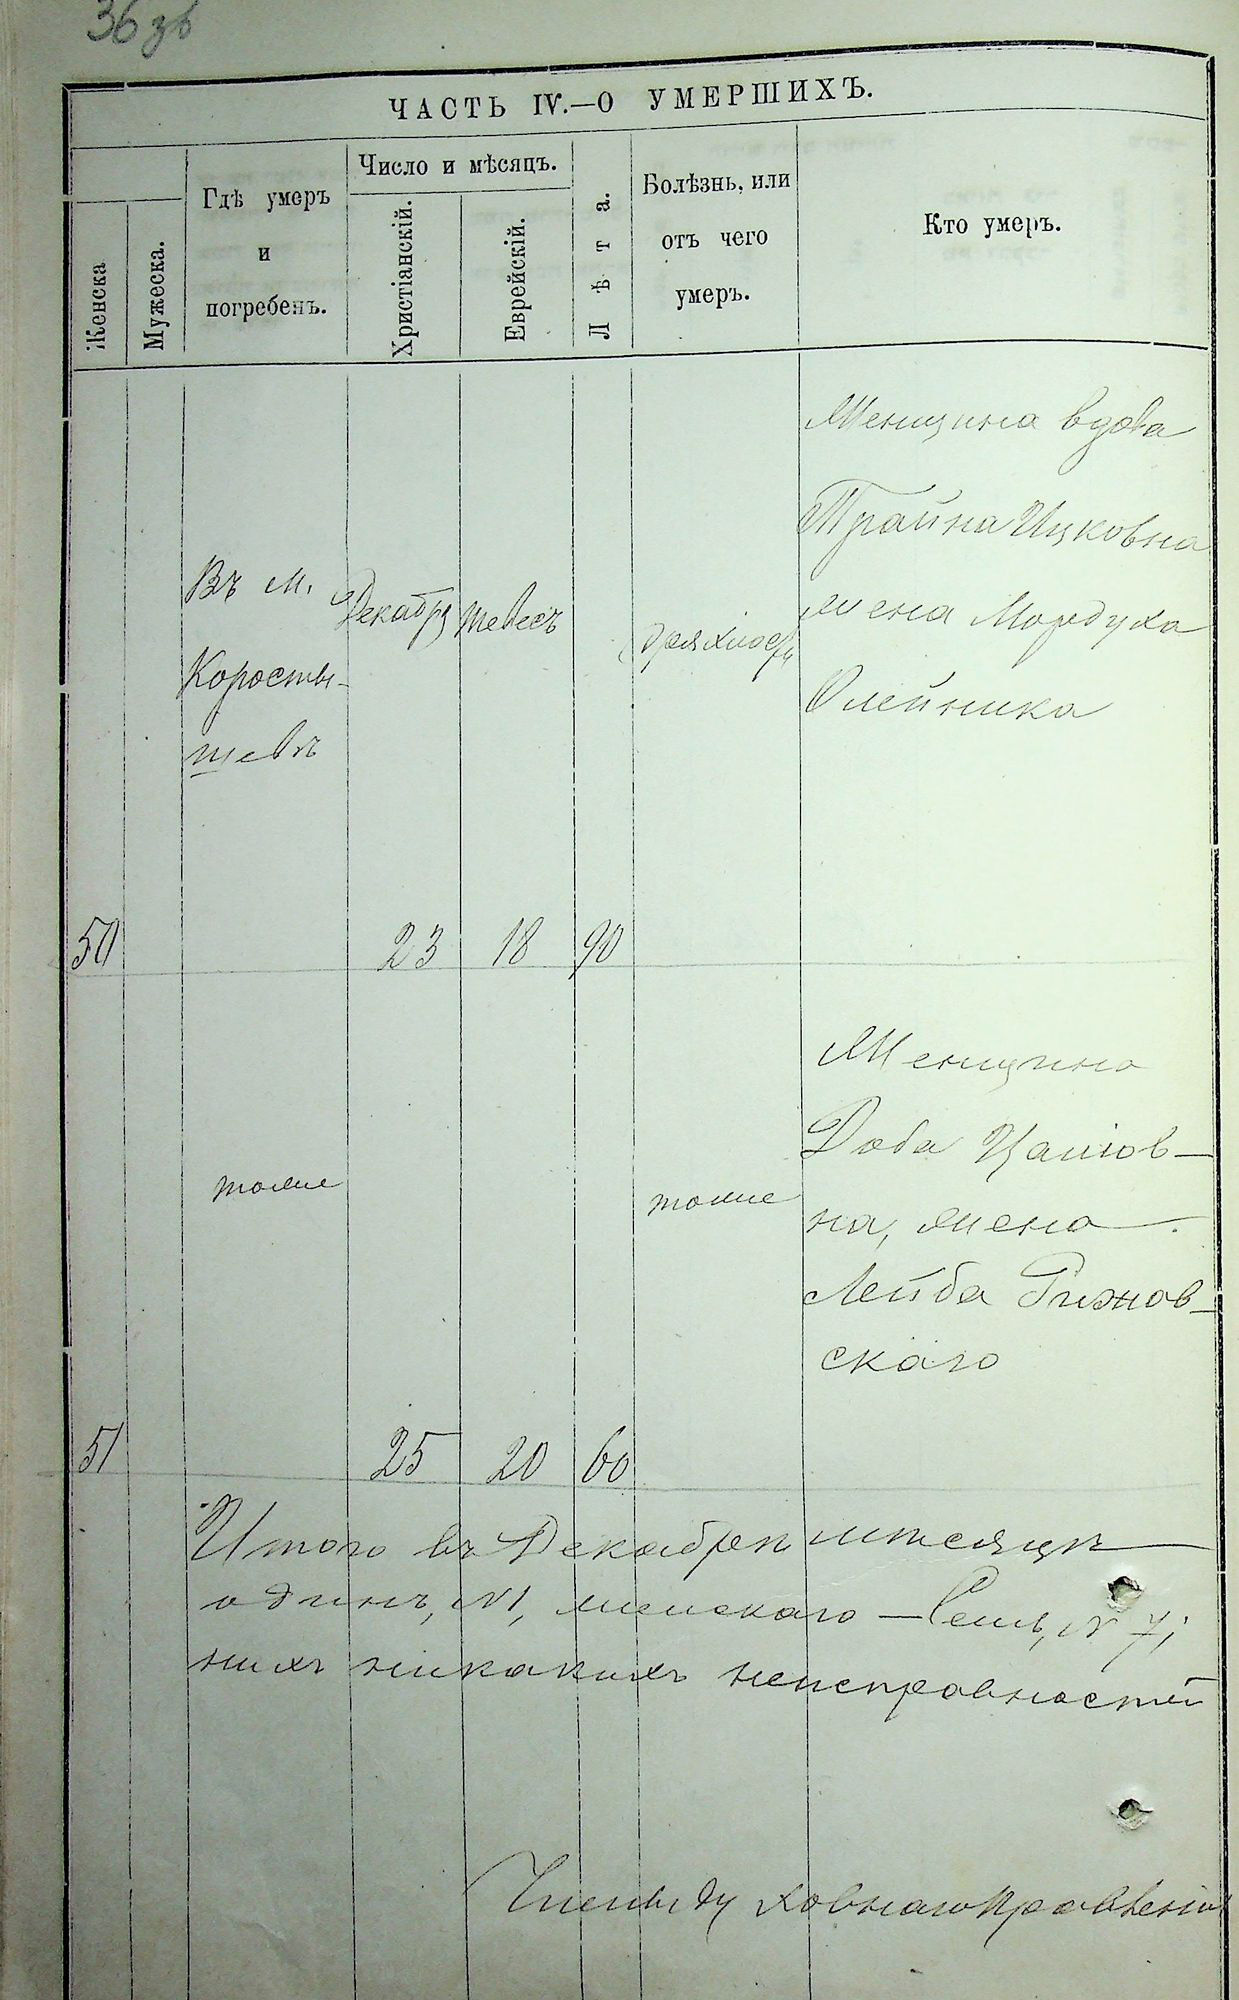 36 зв
ЧАСТЬ IV.—О УМЕРШИХЪ.
Женска
Мужеска.
Гдѣ умеръ
и
погребенъ.
Число и мѣсяцъ.
Христіанскій.
Еврейскій.
Лѣта.
Болѣзнь, или
отъ чего
умеръ.
Кто умеръ.
50
Въ м.
Коросты-
шевѣ
Декабр
23
тевесъ
18
90
Дряхлость
Женщина вдова
Трайна Ицковна
жена Мордуха
Олейника
51
тоже
25
20
60
тоже
Женщина
Доба
на, жена
Лейба Рижнов-
скаго
Итого въ Декабрѣ мѣсяцѣ
одинъ, N 1, женскаго — Семь, N 7;
нихъ никакихъ неисправностей
Члены Духовнаго Правленія